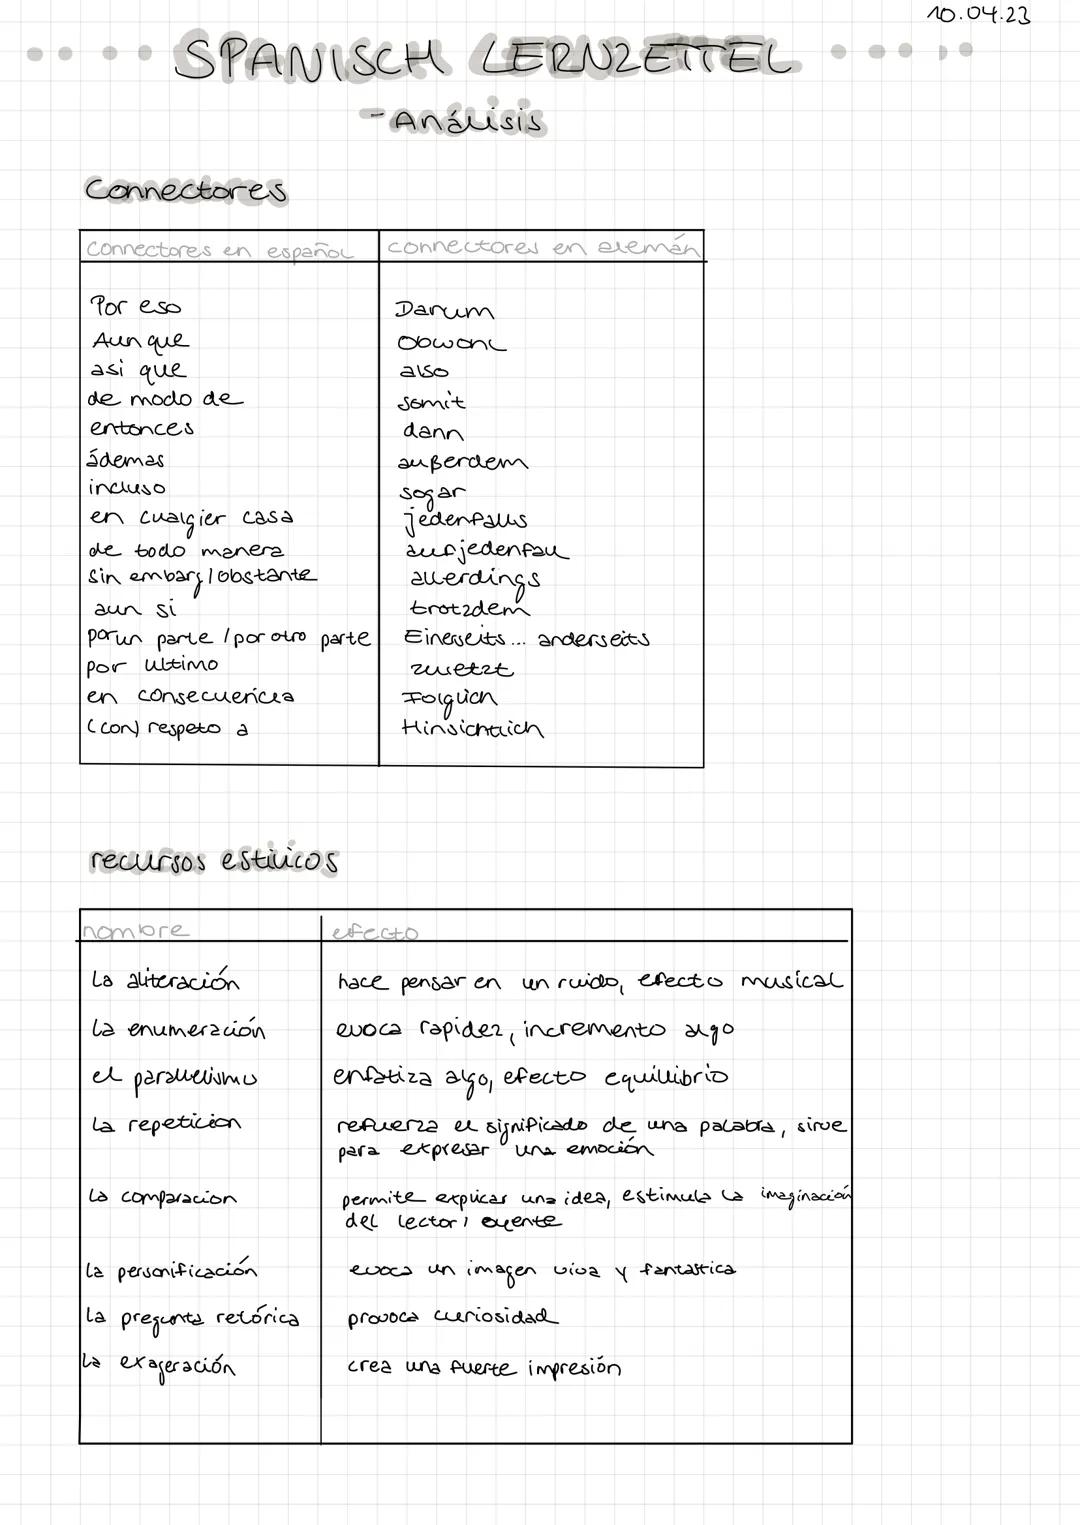 10.04.23
SPANISCH LERNZETTEL
- Análisis
Connectores
connectores en español connectores en alemán
Por eso Darum
Aun que Obwohl
asi que also
de modo de somit
entonces dann
ádemas außerdem
incluso sogar
en cualgier casa jedenfalls
de todo manera aufjedenfall
sin embarg/obstante allerdings
aun si trotzdem
por un parte / por otro parte Einerseits... anderseits
por ultimo zuletzt
en consecuencia Folglich
(con) respeto a Hinsichtlich
recursos estilicos
nombre efecto
La aliteración hace pensar en un ruido, efecto musical
La enumeración evoca rapidez, incremento algo
el parallelismo enfatiza algo, efecto equillibrio
La repeticion refuerza el significado de una palabra, sirve
para expresar una emoción
La comparacion permite explicar una idea, estimula la imaginación
del lector, oyente
La personificación evoca un imagen viva y fantastica
La pregunta retórica provoca curiosidad
La exageración crea una fuerte impresión